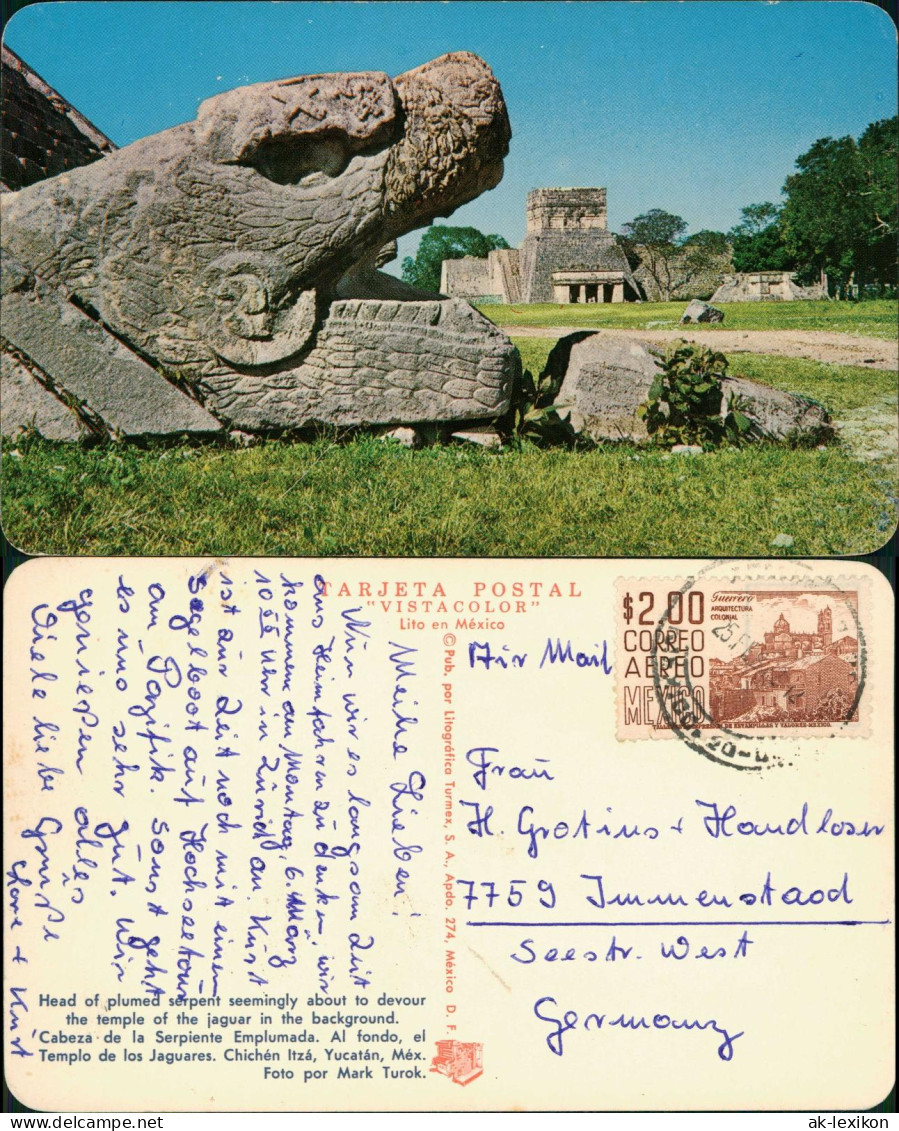 TARJETA POSTAL
"VISTACOLOR"
Lito en México
© Pub. por Litográfica Turmex, S. A., Apdo. 274, México D. F.
Meine Lieben!
Nun wir es langsam Zeit
ans Heimfahren zu denken, wir
kommen am Montag, 6. März
10 Uhr in Zürich an. Kurt
ist zur Zeit noch mit einem
Segelboot auf Hochseetour
am Pazifik. Sonst geht
es uns sehr gut. Wir
genießen alles
Viele liebe Grüße
+ Kurt
Head of plumed serpent seemingly about to devour
the temple of the jaguar in the background.
Cabeza de la Serpiente Emplumada. Al fondo, el
Templo de los Jaguares. Chichén Itzá, Yucatán, Méx.
Foto por Mark Turok.
Air Mail
$2.00
CORREO
AEREO
MEXICO
Guerrero
ARQUITECTURA
COLONIAL
Frau
H. Grotius + Handloser
7759 Immenstaad
Seestr. West
Germany
ak-lexikon